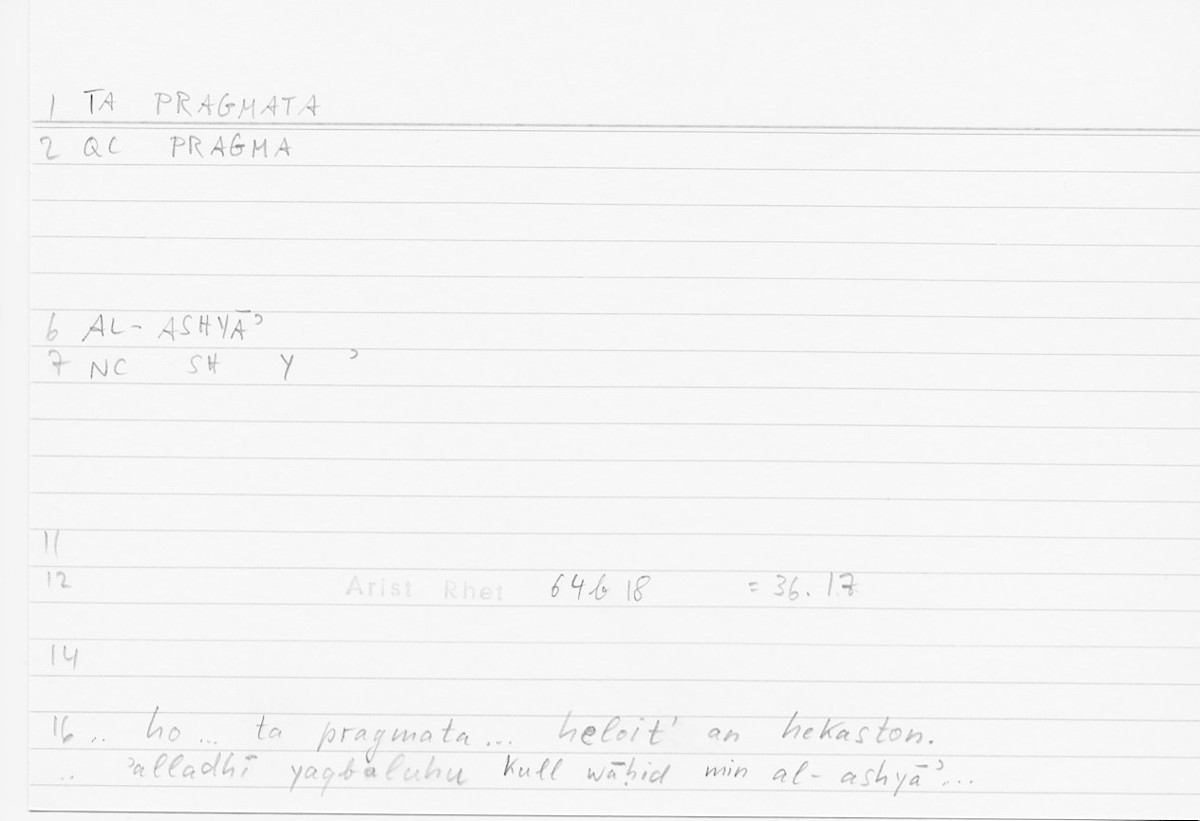 1 TA PRAGMATA
2 QC PRAGMA
6 AL- ASHYĀʾ
7 NC SH Y ʾ
11
12 Arist Rhet 64b 18 = 36. 17
14
16 .. ho ... ta pragmata ... heloit' an hekaston.
.. ʾalladhī yaqbaluhu kull wāḥid min al- ashyāʾ...